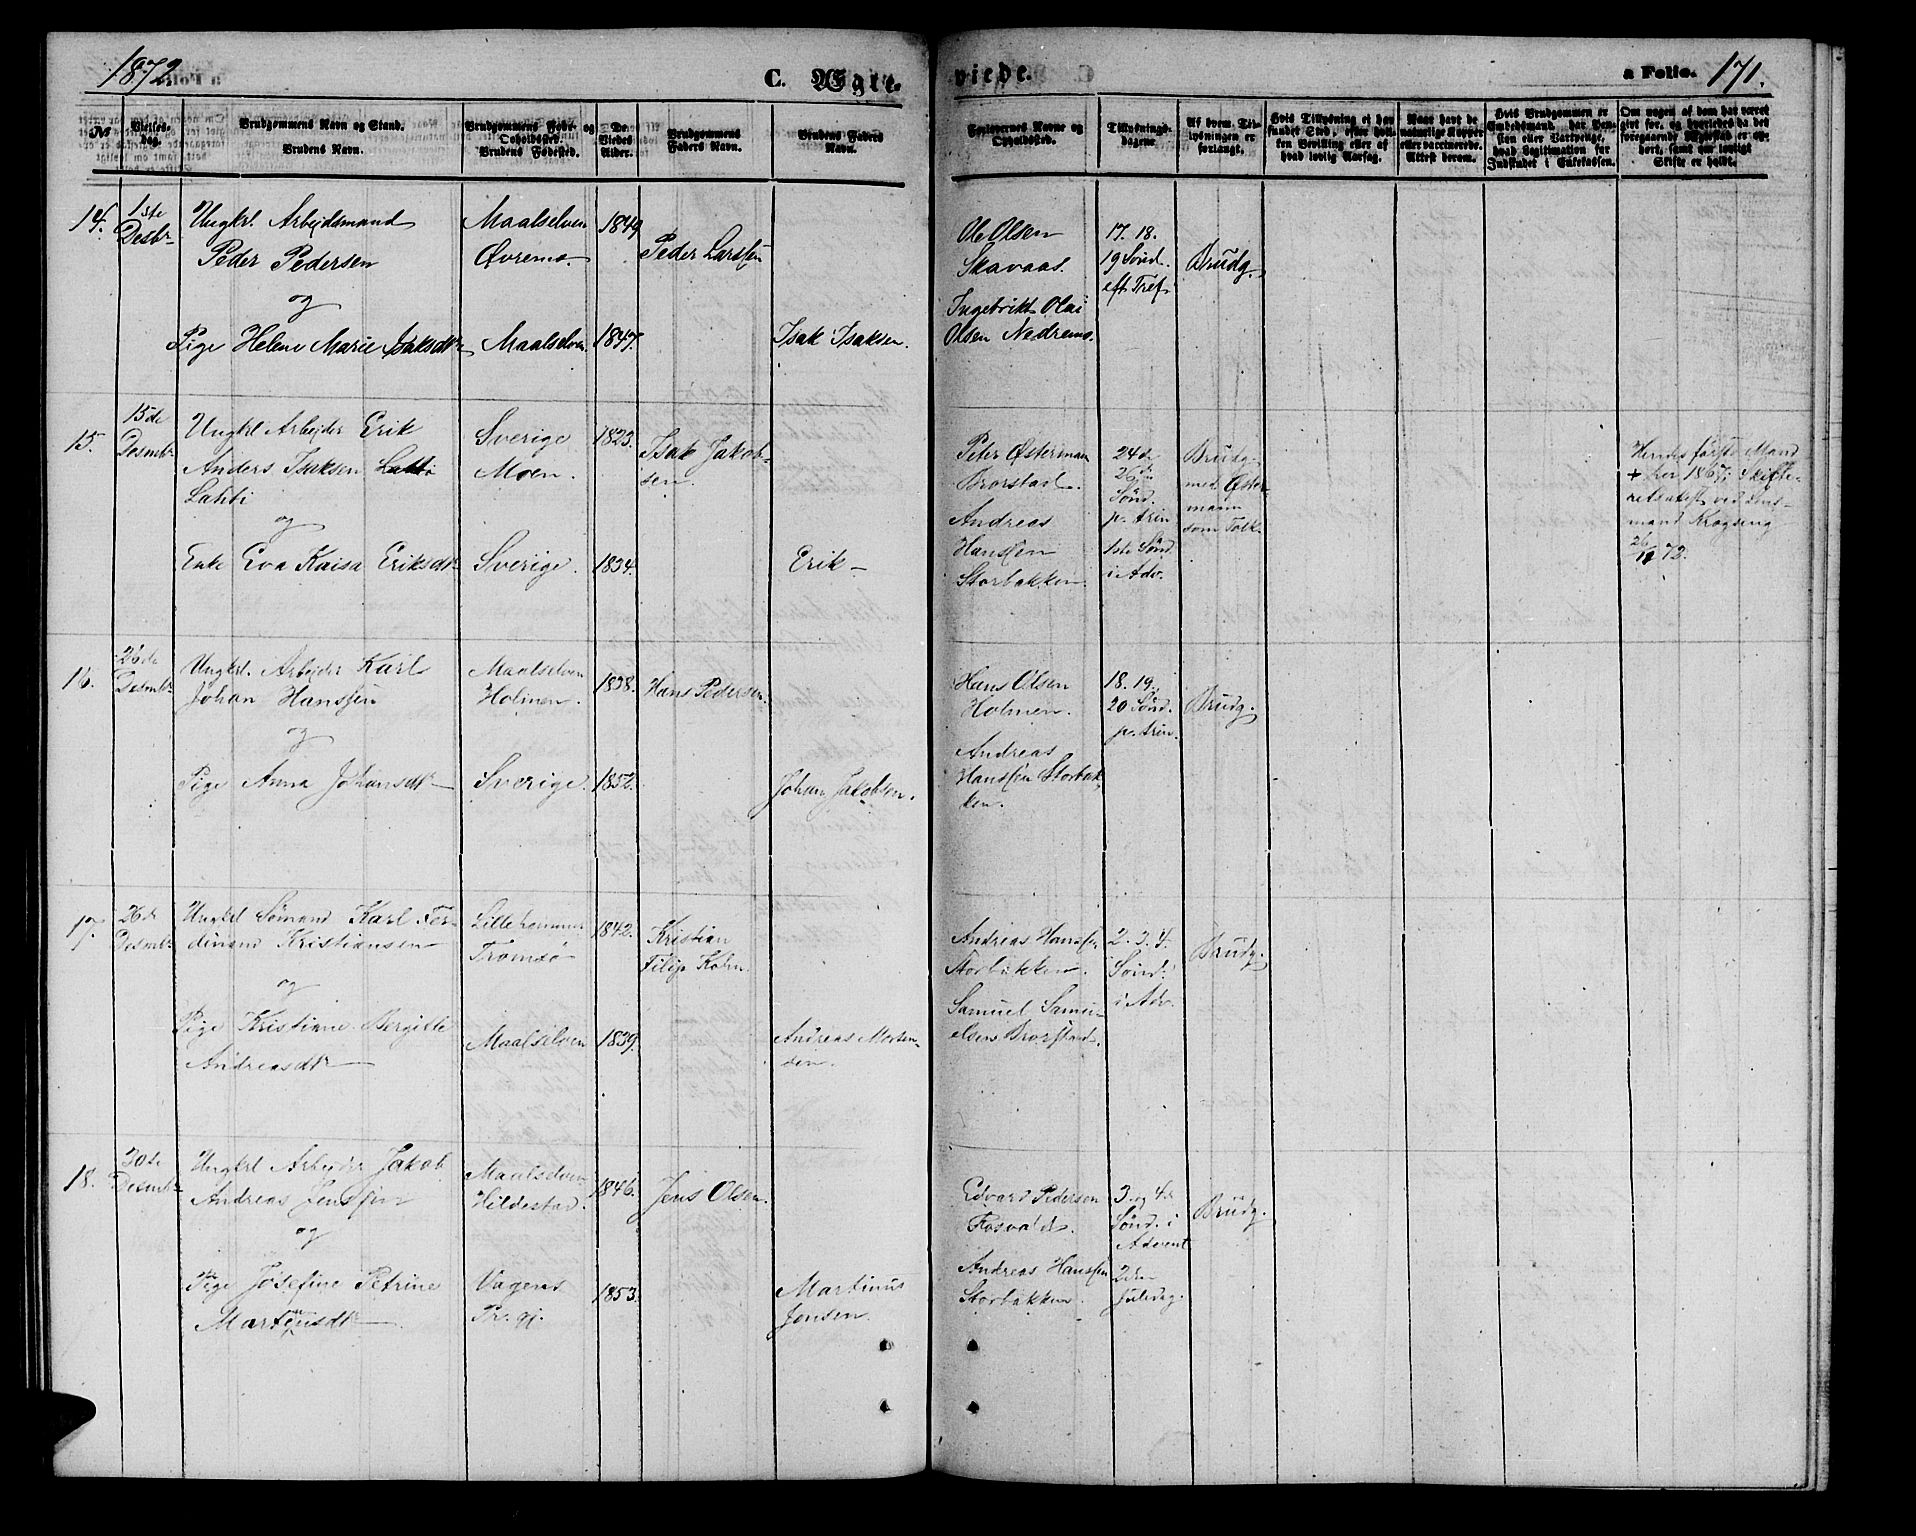 1872
C. Egte-
viede.
a Folio. 171.
№
Vielses-
dag.
Brudgommens Navn og Stand.
Brudens Navn.
Brudgommens Føde- og
Opholdssted.
Brudens Fødested.
De
Viedes
Alder.
Brudgommens
Faders Navn.
Brudens Faders
Navn.
Forlovernes Navne og
Opholdssted.
Tillysnings-
dagene.
Af hvem Til-
lysningen er
forlangt.
Hvis Tillysning ei har
fundet Sted, efter hvil-
ken Bevilling eller af
hvad lovlig Aarsag.
Naar havt de
naturlige Kopper
eller vaccinerede.
Attest derom.
Hvis Brudgommen er
Embedsmand, har Pen-
sion eller Vartpenge,
hvad Legitimation for
Indskudet i Enkekassen.
Om nogen af dem har været
gift før, og hvorledes da det
foregaaende Ægteskab er op-
hørt, samt om lovligt
Skifte er holdt.
14.
1ste
Desbr
Ungkrl Arbejdsmand
Peder Pedersen
og
Pige Helene Marie Isaksdtr
Maalselven
Øvremo.
Maalselven
1849
1847.
Peder Larssen
Isak Isaksen.
Ole Olsen
Skavaas.
Ingebrikt Olai
Olsen Nedremo.
17. 18.
19 Sönd.
eft Tref.
Brudg.
15.
15de
Desmbr
Ungkrl Arbejder Erik
Anders Isaksen
Lahti
og
Enke Eva Kaisa Eriksdtr
Sverige
Moen.
Sverige.
1823.
1834.
Isak Jakob-
sen.
Erik —
Peter Østerman
Brorstad.
Andreas
Hanssen
Storbakken.
24de
26de
Sönd.
p. trin
1ste Sönd
i Adv.
Brudg.
med Øster-
mann
som Tolk.
Hendes förste Mand
+ her 1867; Skifte-
retsattest ved Lens-
mand Krogseng
26/11 72.
16.
26de
Desmbr
Ungkrl. Arbejder Karl
Johan Hanssen
og
Pige Anna Johansdtr
Maalselven
Holmen.
Sverige.
1838.
1852.
Hans Pedersen.
Johan Jakobsen.
Hans Olsen
Holmen.
Andreas
Hanssen Storbak-
ken.
18. 19.
20 Sönd.
p. trin.
Brudg.
17.
26de
Desmbr
Ungkrl Sömand Karl Fer-
dinand Kristiansen
og
Pige Kristiane Bergitte
Andreasdtr
Lillehammer
Tromsö
Maalselven
1842.
1839.
Kristian
Filip Kohn.
Andreas Morten-
sen.
Andreas Hanssen
Storbakken.
Samuel Samu-
elsen Brorstad.
2. 3. 4.
Sönd.
i Adv.
Brudg.
18.
30te
Desmbr
Ungkrl Arbejder Jakob
Andreas Jenssen
og
Pige Josefine Petrine
Martinusdtr
Maalselven
Hildestad.
Vagens
Pr. gj.
1846.
1853.
Jens Olsen.
Martinus
Jonsen.
Edvard Pedersen
Rosvold.
Andreas Hanssen
Storbakken.
3. og 4de
Sönd. i
Advent
2den
Juledag.
Brudg.